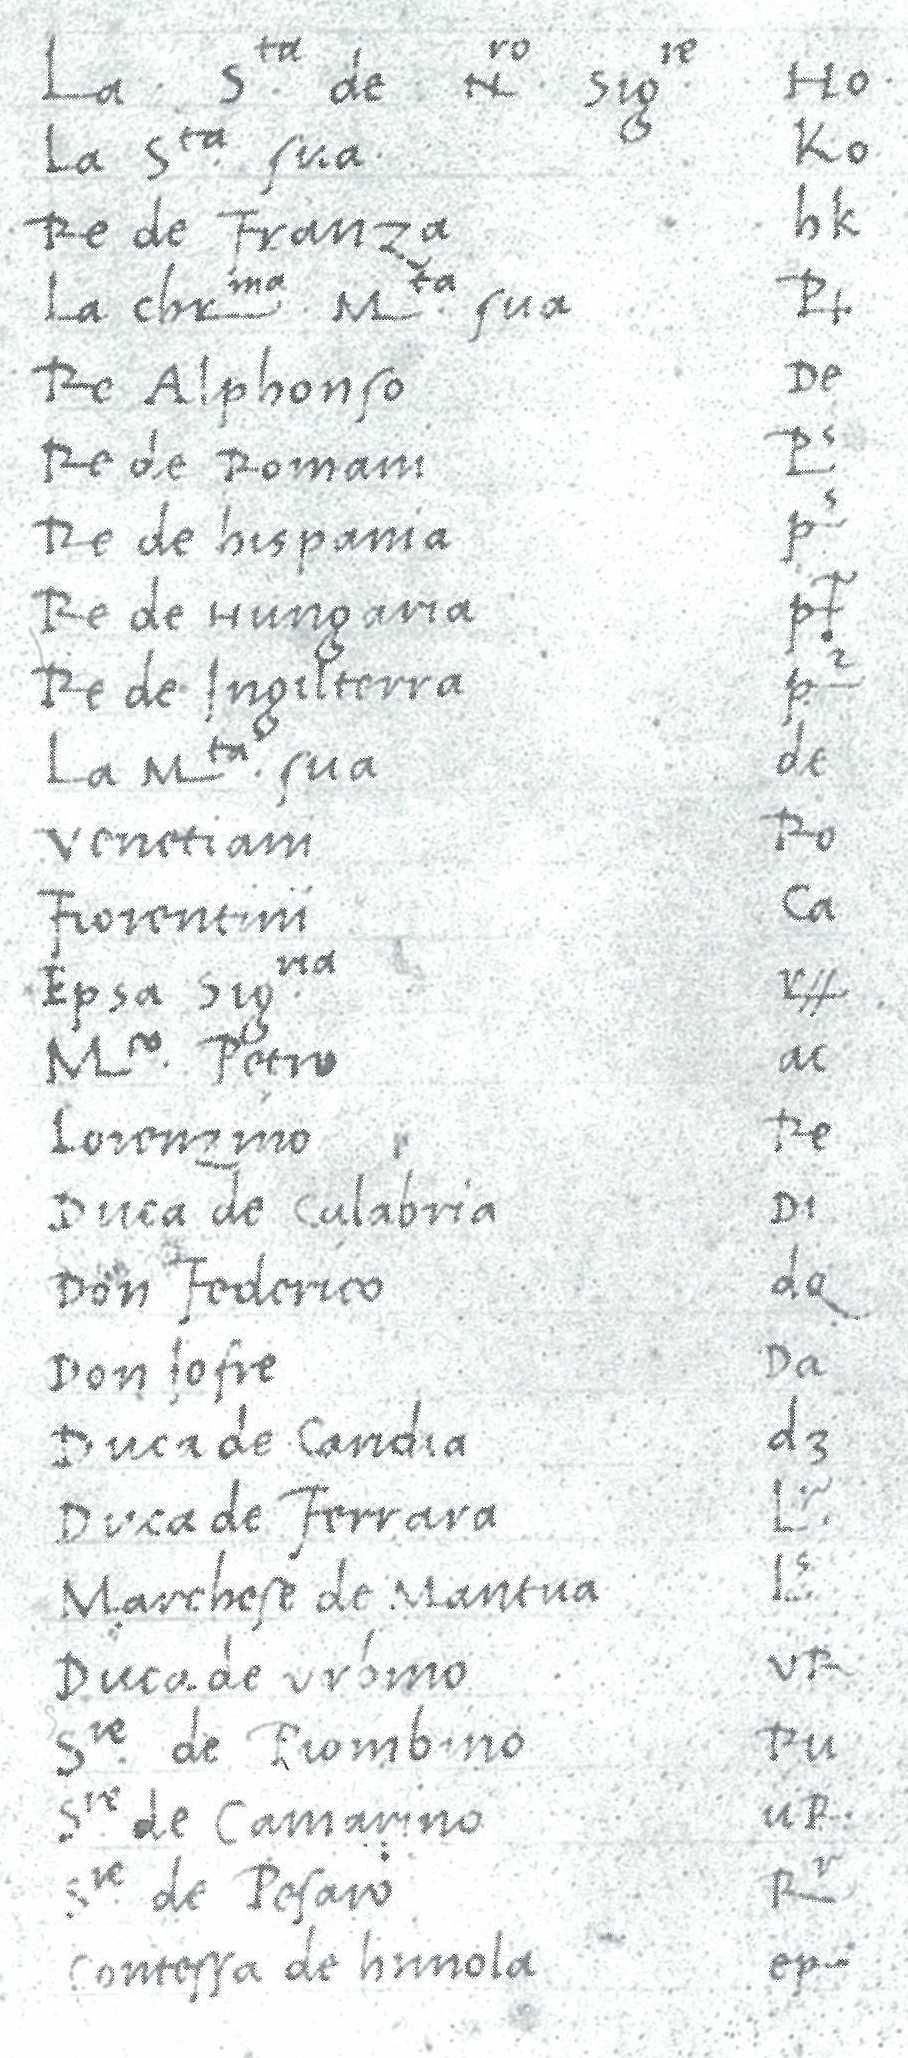 La S.ta de N.ro Sig.re Ho
La S.ta sua Ko
Re de Franza hk
La chr.ma M.ta sua
Re Alphonso De
Re de Romani
Re de hispania
Re de Hungaria
Re de Ingilterra
La M.ta sua de
Venetiani Ro
Fiorentinii Ca
Epsa Sig.ria
M.co Petro ac
Lorenzino Re
Duca de Calabria Di
Don Federico
Don Iofre Da
Duca de Candia d3
Duca de Ferrara
Marchese de Mantua
Duca de Urbino VR
S.re de Piombino Ru
S.re de Camarino uR
S.re de Pesaro
Contessa de himola